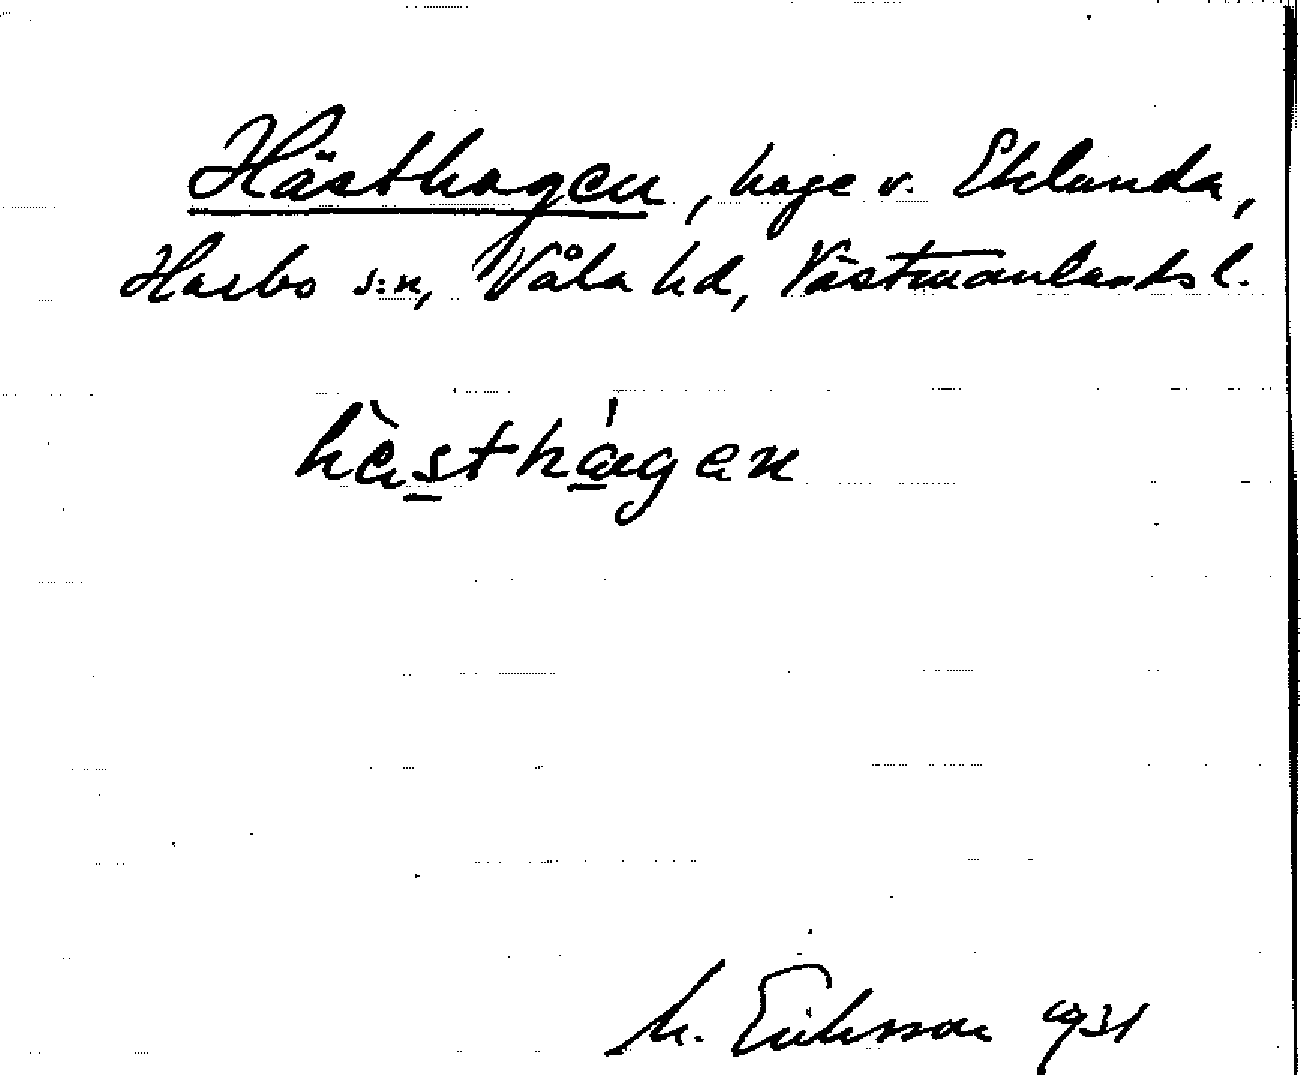 Hästhagen, hage v. Eklunda,
Harbo s:n, Våla hd, Västmanlands l.
hèsthágen
M. Eriksson 1931